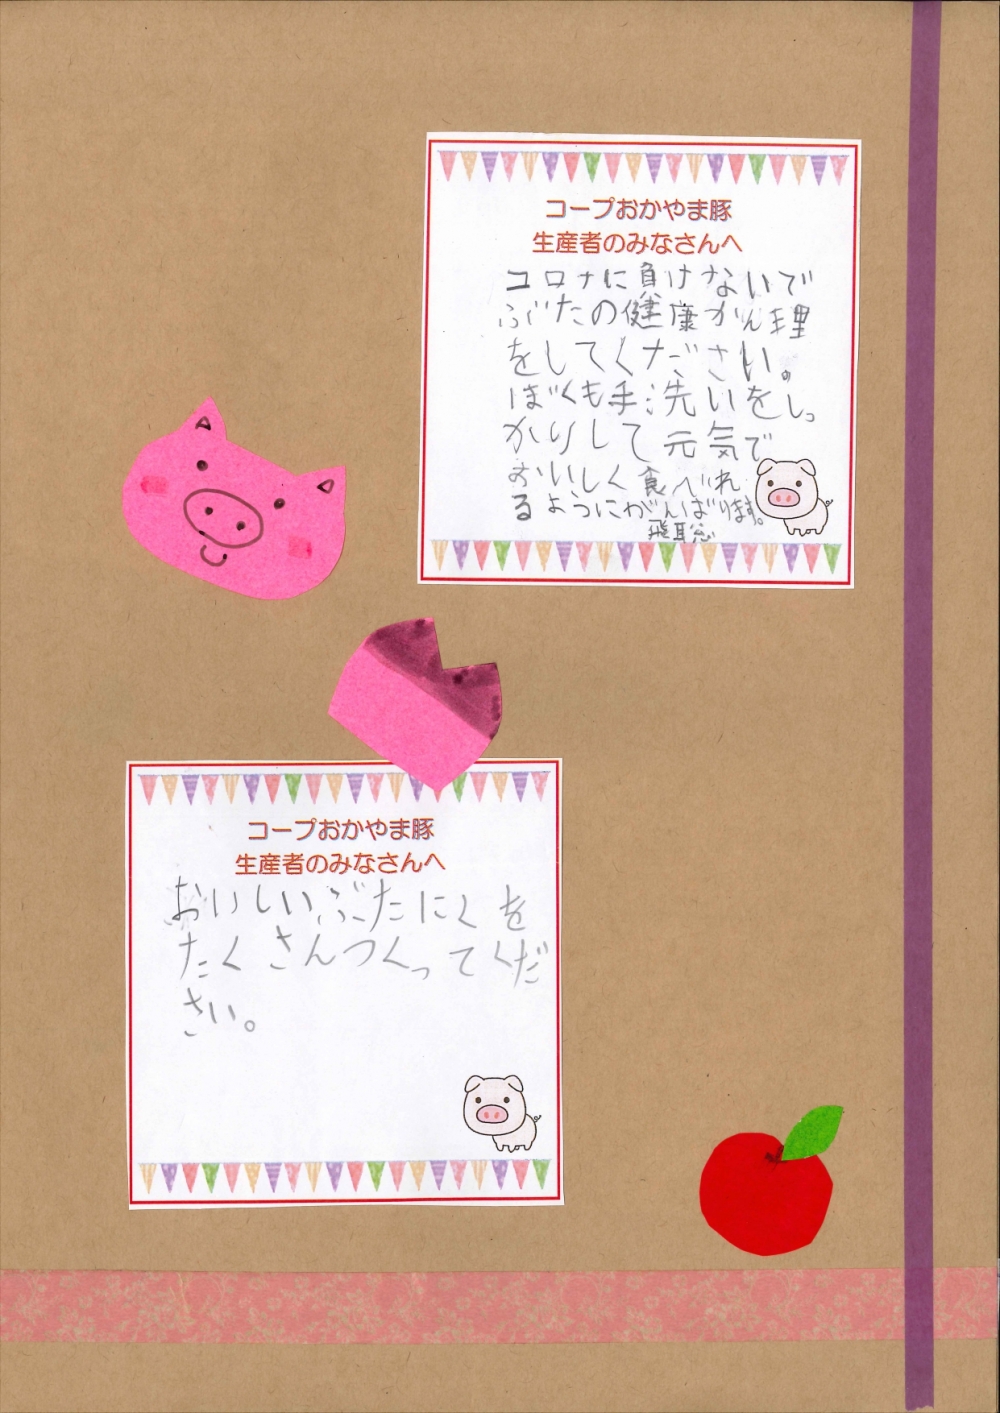 コープおかやま豚
生産者のみなさんへ
コロナに負けないで
ぶたの健康かん理
をしてください。
ぼくも手洗いをしっ
かりして元気で
おいしく食べれ
るようにがんばります。
コープおかやま豚
生産者のみなさんへ
おいしいぶたにくを
たくさんつくってくだ
さい。